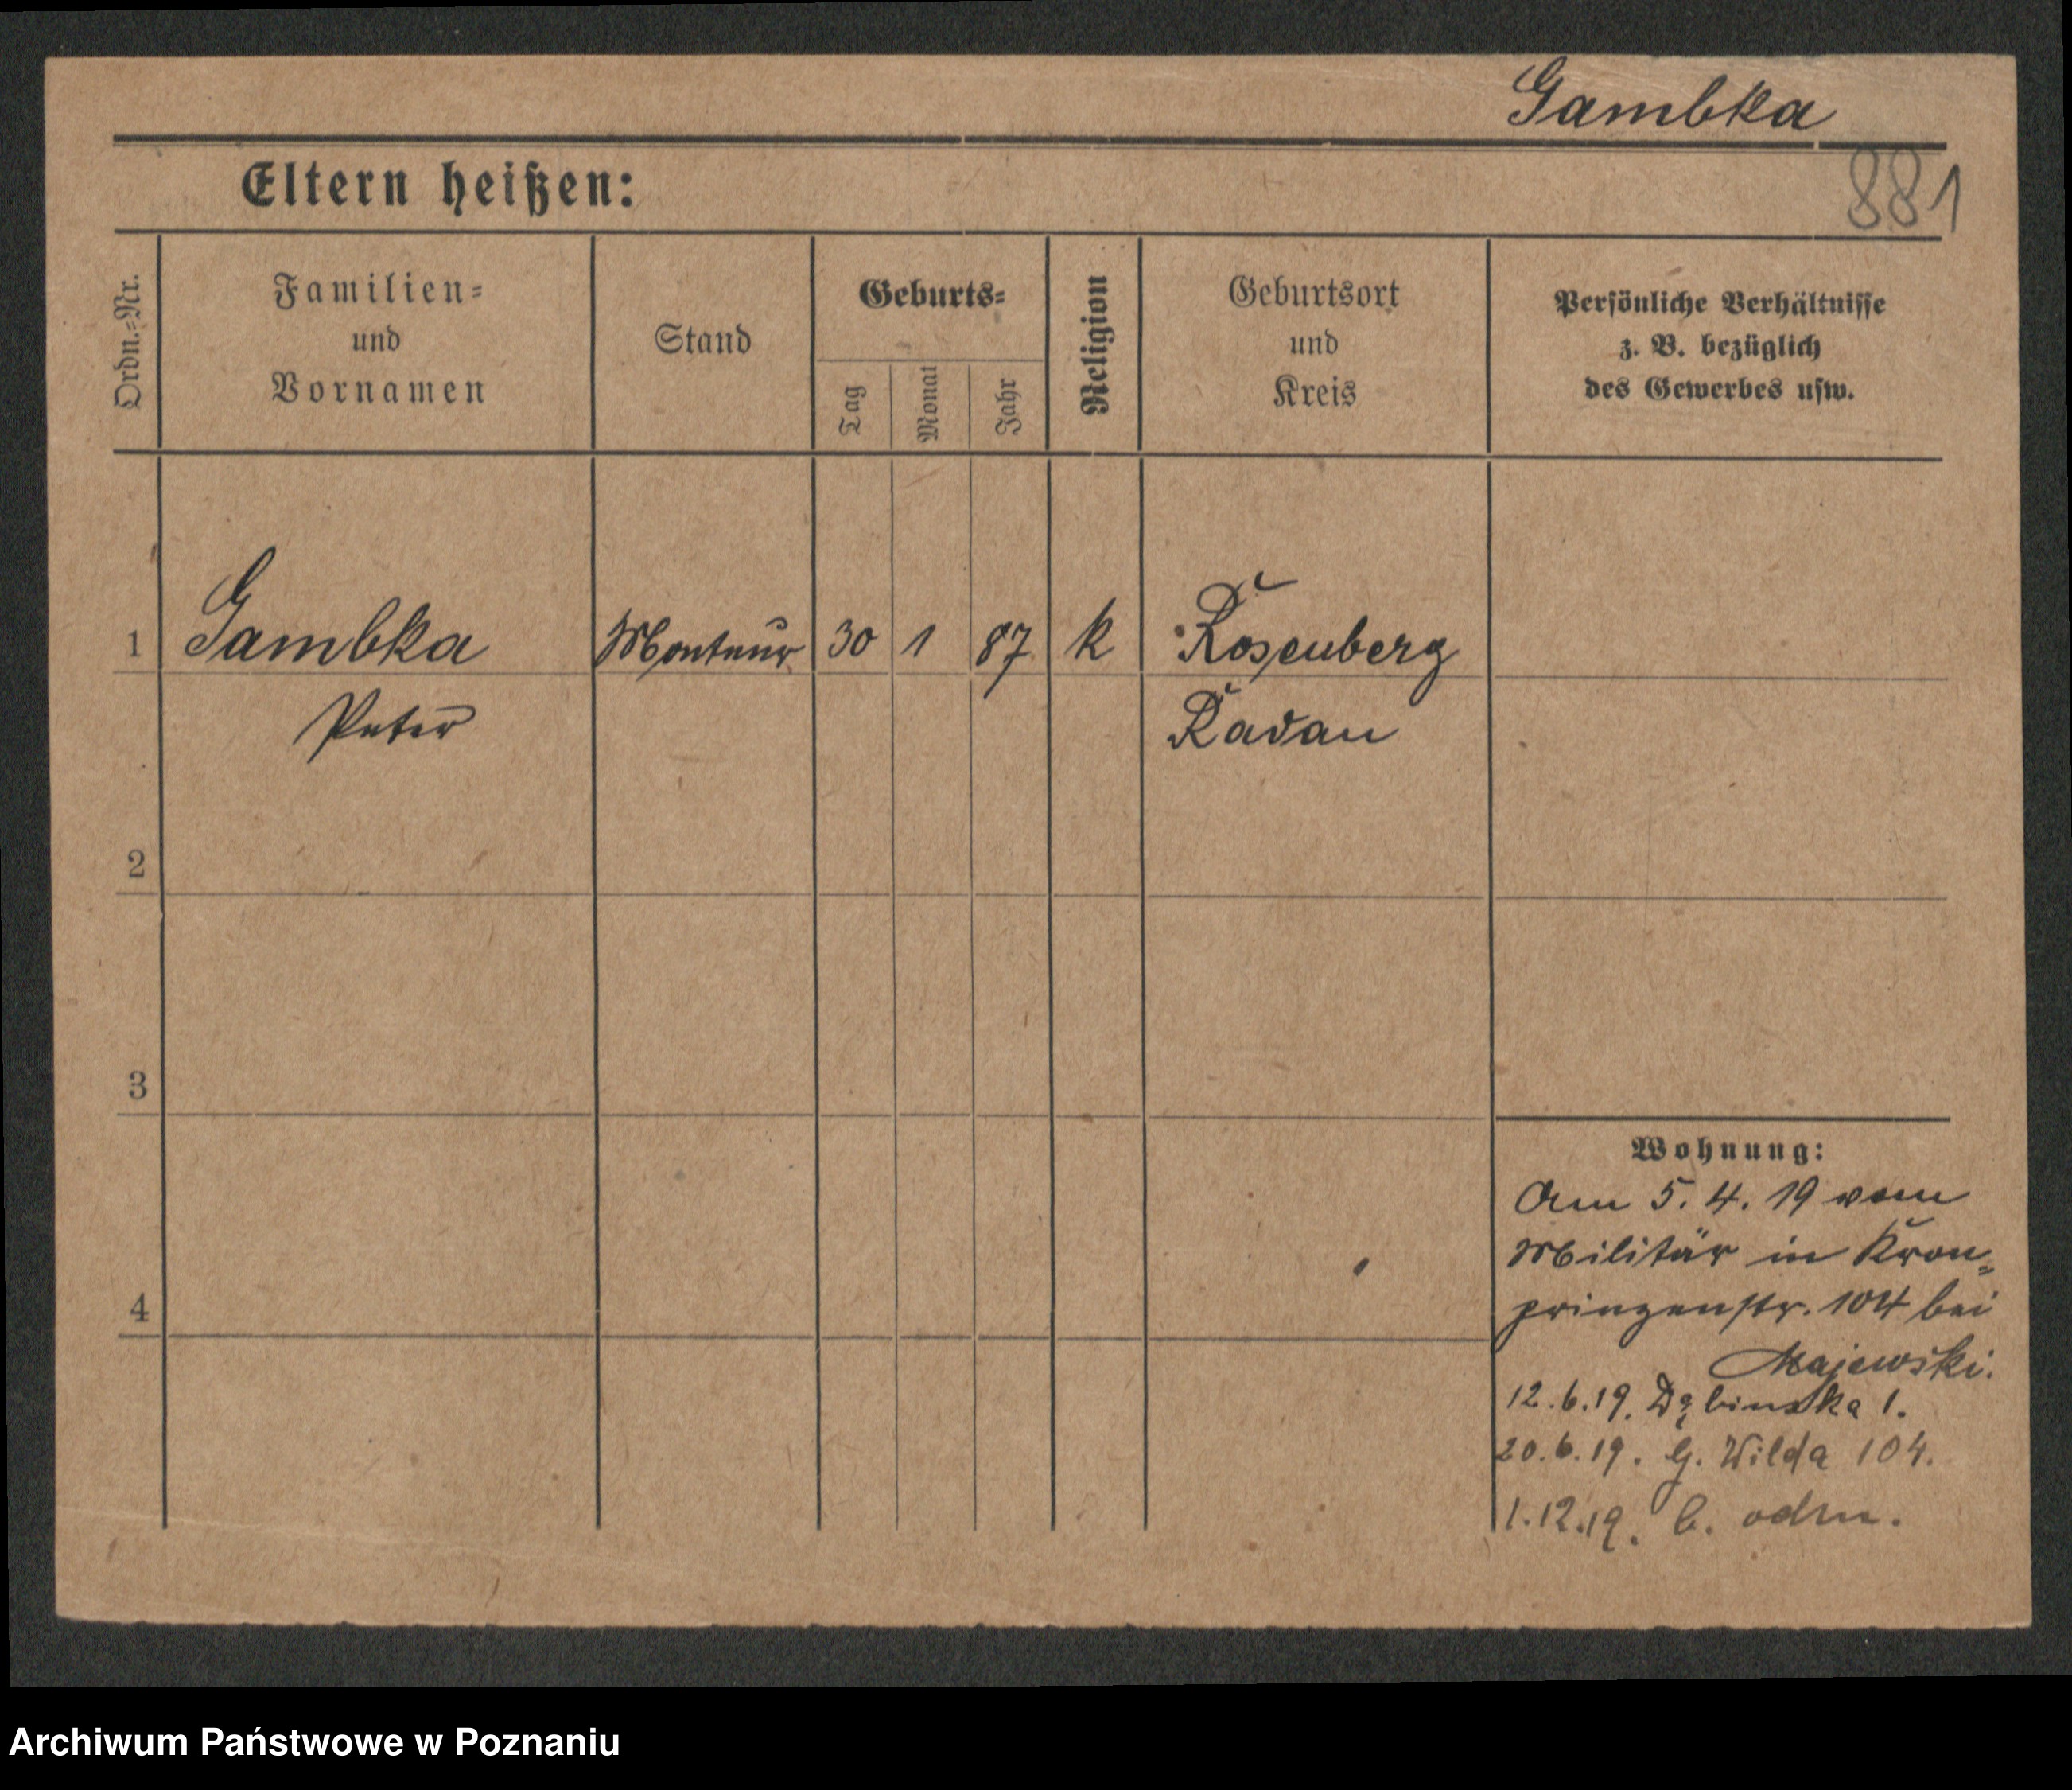 Gambka
881
Eltern heißen:
Ordn.=Nr.
Familien=
und
Vornamen
Stand
Geburts=
Tag
Monat
Jahr
Religion
Geburtsort
und
Kreis
Persönliche Verhältnisse
z. B. bezüglich
des Gewerbes usw.
1 Gambka Monteur 30 1 87 k Rosenberg
Peter
2
3
4
Wohnung:
Am 5. 4. 19 vom
Militär in Kron=
prinzenstr. 104 bei
Majewski.
12.6.19. Dębinska 1.
20.6.19. G. Wilda 104.
1.12.19. b. odm.
Archiwum Państwowe w Poznaniu